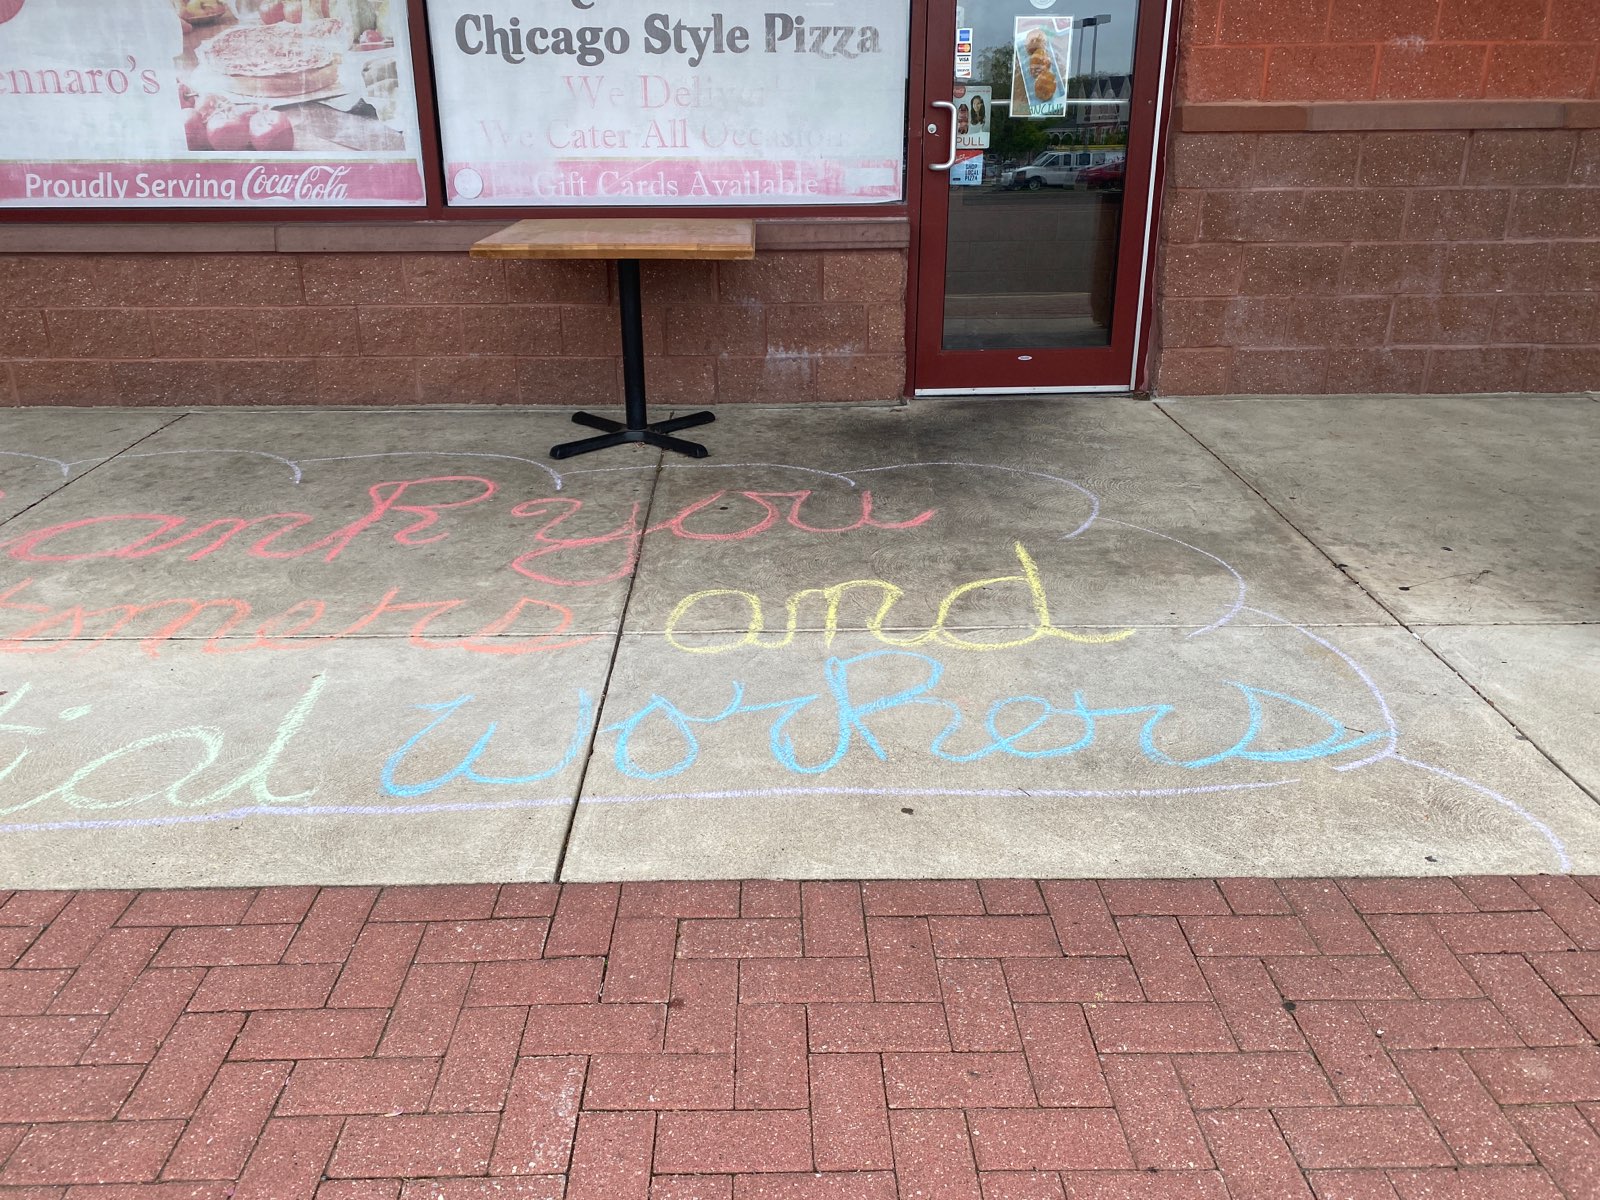 ennaro's
Proudly Serving Coca-Cola
Chicago Style Pizza
We Deliver
We Cater All Occasions
Gift Cards Available
VISA
PULL
SHOP
LOCAL
PIZZA
ank you
tomers and
tial workers